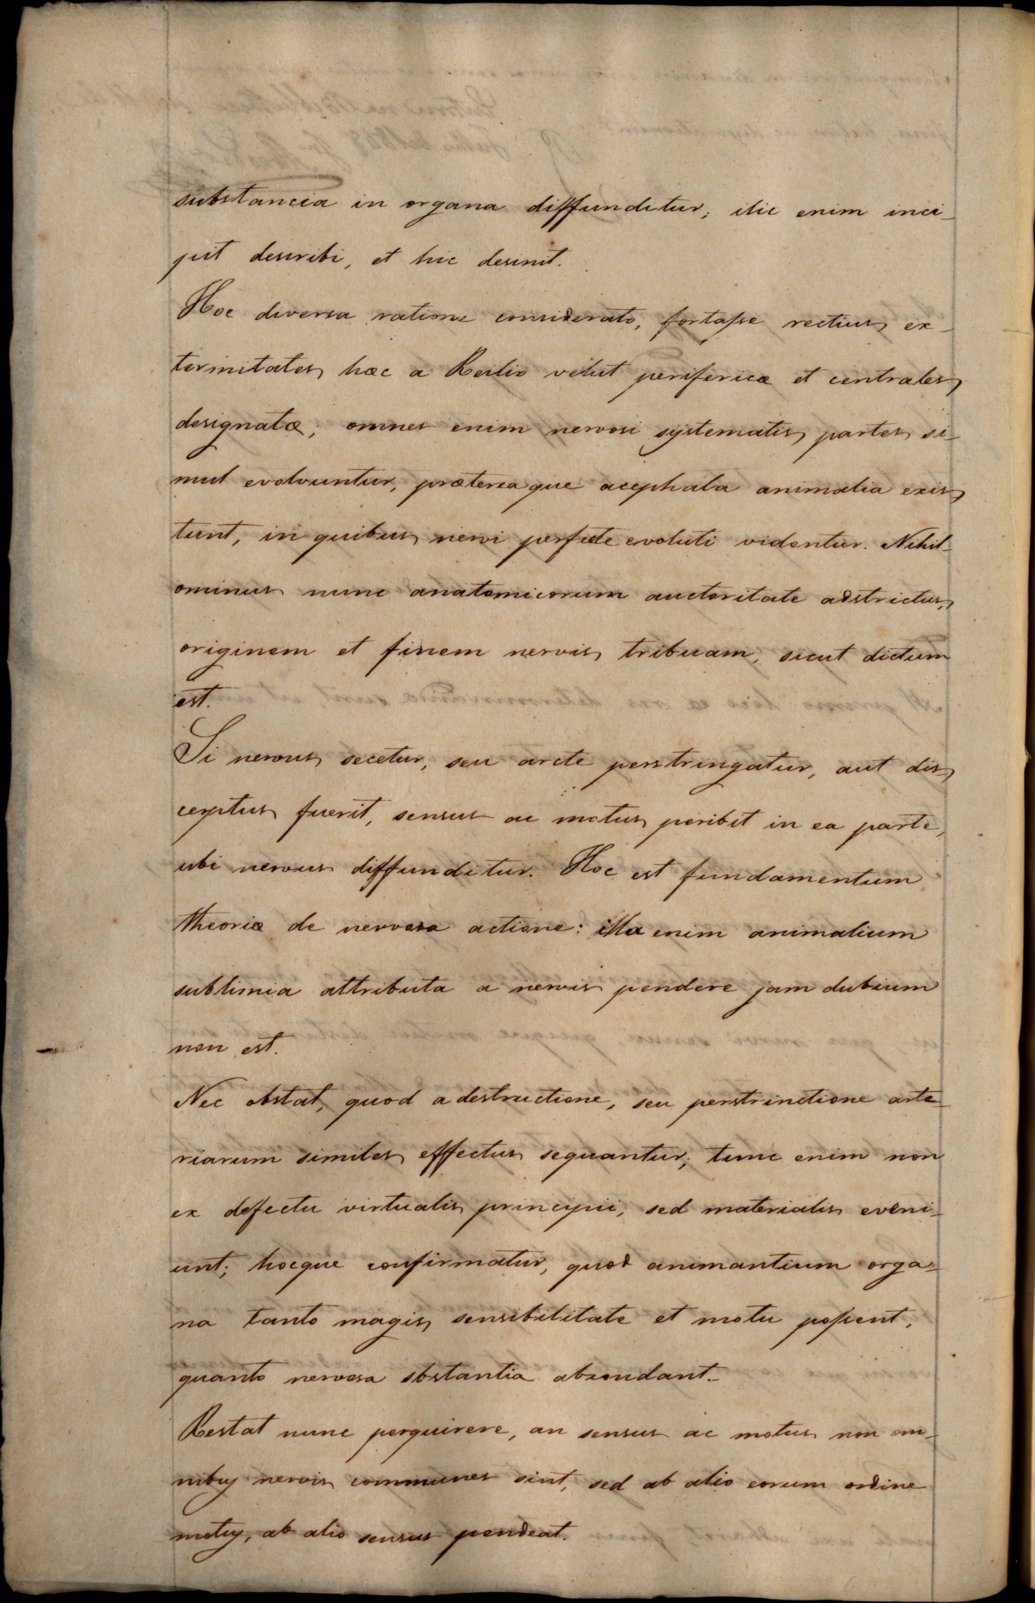 substancia in organa diffunditur; ilic enim inci-
pit describi, et hic desinit.
Hoc diversa ratione considerato, fortaſse rectius ex-
termitates hæc a Reilio velut periferica et centrales
designatæ, omnes enim nervosi systematis partes si-
mul evolvuntur, præterea que acephala animalia exis
tunt, in quibus nervi perfecte evoluti videntur. Nihil-
ominus nunc anatomicorum auctoritate adstrictus,
originem et finem nervis tribuam, sicut dictum
est.
Si nervus secetur, seu arcte perstringatur, aut dis
cerptus fuerit, sensus ac motus peribit in ea parte,
ubi nervus diffunditur. Hoc est fundamentum
theoriæ de nervosa actione: illa enim animalium
sublimia attributa a nervis pendere jam dubium
non est.
Nec obstat, quod a destructione, seu perstrinctione arte-
riarum similes effectus sequantur; tunc enim non
ex defectu virtualis principii, sed materialis eveni-
unt; hocque confirmatur, quod animantium orga-
na tanto magis sensibilitate et motu poſsent,
quanto nervosa sbstantia abundant.
Restat nunc perquirere, an sensus ac motus non om-
nibus nervis communes sint, sed ab alio eorum ordine
motus, ab alio sensus pendeat.